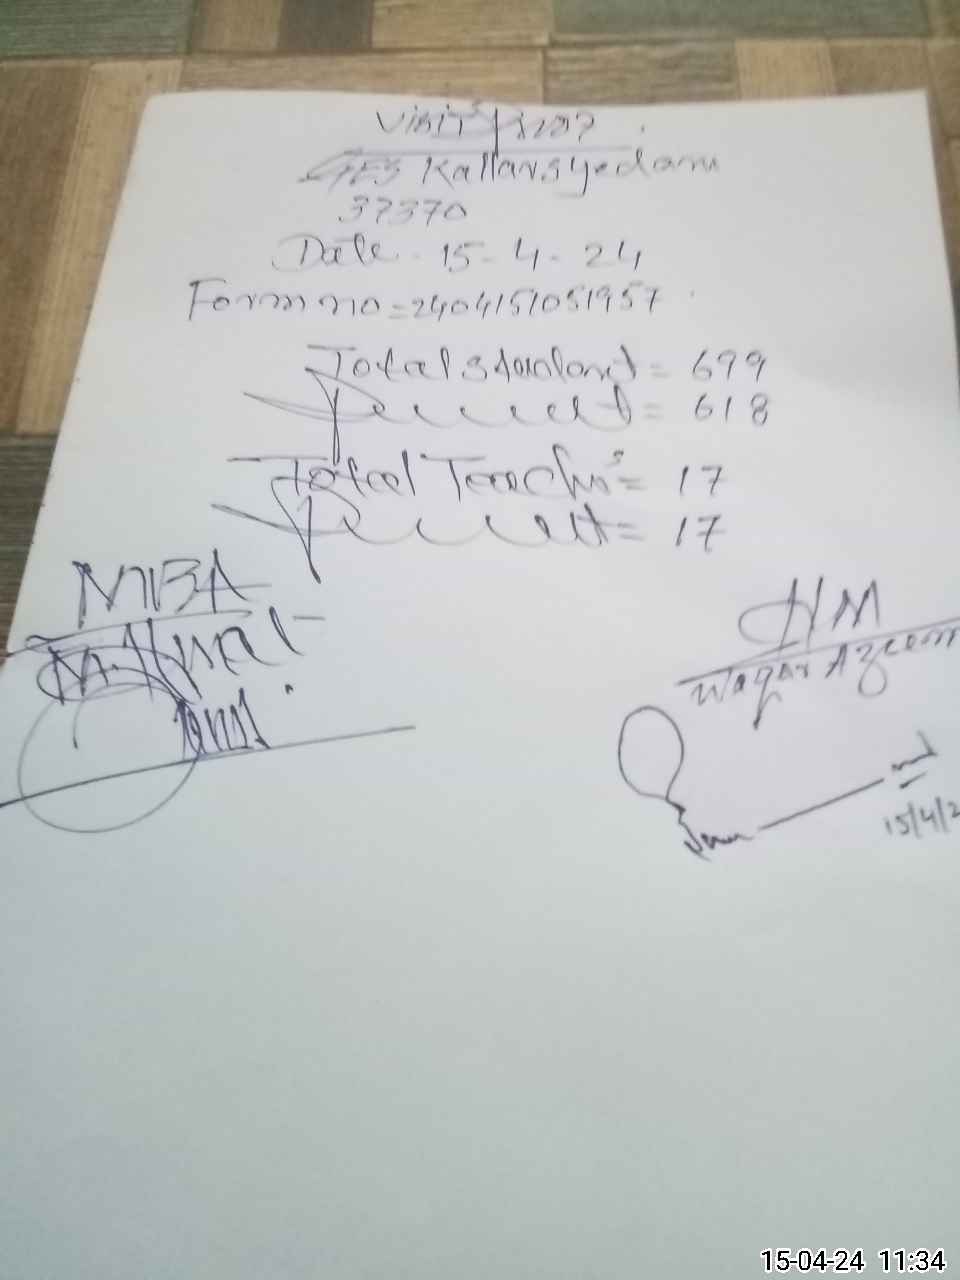 Visit
GES Kallarsyedan
37370
Date. 15-4-24
Form no = 2404151051957
Total Student = 699
Present = 618
Total Teachers = 17
Present = 17
MBA
HM
Waqar Azeem
15/4/2
15-04-24 11:34